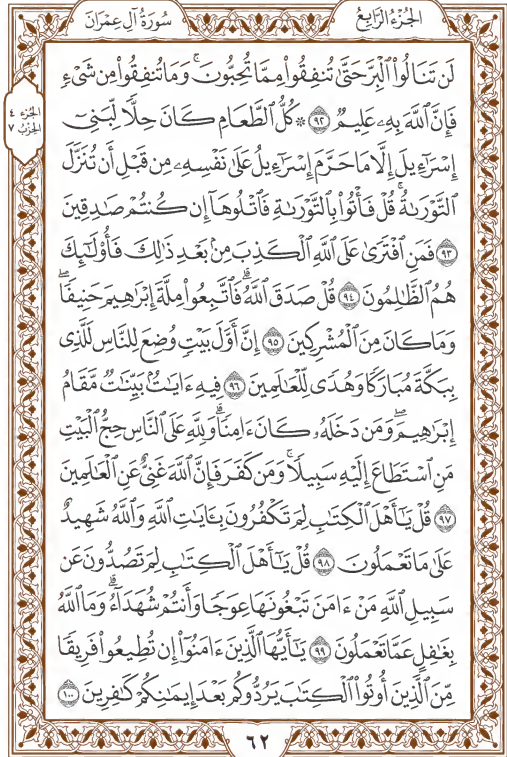 الجُزْءُ الرَّابِعُ
سُورَةُ آلِ عِمْرَان
لَن تَنَالُوا۟ ٱلْبِرَّ حَتَّىٰ تُنفِقُوا۟ مِمَّا تُحِبُّونَۚ وَمَا تُنفِقُوا۟ مِن شَىْءٍ
فَإِنَّ ٱللَّهَ بِهِۦ عَلِيمٌ ٩٢ ۞ كُلُّ ٱلطَّعَامِ كَانَ حِلًّا لِّبَنِىٓ
إِسْرَٰٓءِيلَ إِلَّا مَا حَرَّمَ إِسْرَٰٓءِيلُ عَلَىٰ نَفْسِهِۦ مِن قَبْلِ أَن تُنَزَّلَ
ٱلتَّوْرَىٰةُۚ قُلْ فَأْتُوا۟ بِٱلتَّوْرَىٰةِ فَٱتْلُوهَآ إِن كُنتُمْ صَٰدِقِينَ
٩٣ فَمَنِ ٱفْتَرَىٰ عَلَى ٱللَّهِ ٱلْكَذِبَ مِنۢ بَعْدِ ذَٰلِكَ فَأُو۟لَٰٓئِكَ
هُمُ ٱلظَّٰلِمُونَ ٩٤ قُلْ صَدَقَ ٱللَّهُۗ فَٱتَّبِعُوا۟ مِلَّةَ إِبْرَٰهِيمَ حَنِيفًاۖ
وَمَا كَانَ مِنَ ٱلْمُشْرِكِينَ ٩٥ إِنَّ أَوَّلَ بَيْتٍ وُضِعَ لِلنَّاسِ لَلَّذِى
بِبَكَّةَ مُبَارَكًا وَهُدًى لِّلْعَٰلَمِينَ ٩٦ فِيهِ ءَايَٰتٌۢ بَيِّنَٰتٌ مَّقَامُ
إِبْرَٰهِيمَۖ وَمَن دَخَلَهُۥ كَانَ ءَامِنًاۗ وَلِلَّهِ عَلَى ٱلنَّاسِ حِجُّ ٱلْبَيْتِ
مَنِ ٱسْتَطَاعَ إِلَيْهِ سَبِيلًاۚ وَمَن كَفَرَ فَإِنَّ ٱللَّهَ غَنِىٌّ عَنِ ٱلْعَٰلَمِينَ
٩٧ قُلْ يَٰٓأَهْلَ ٱلْكِتَٰبِ لِمَ تَكْفُرُونَ بِـَٔايَٰتِ ٱللَّهِ وَٱللَّهُ شَهِيدٌ
عَلَىٰ مَا تَعْمَلُونَ ٩٨ قُلْ يَٰٓأَهْلَ ٱلْكِتَٰبِ لِمَ تَصُدُّونَ عَن
سَبِيلِ ٱللَّهِ مَنْ ءَامَنَ تَبْغُونَهَا عِوَجًا وَأَنتُمْ شُهَدَآءُۗ وَمَا ٱللَّهُ
بِغَٰفِلٍ عَمَّا تَعْمَلُونَ ٩٩ يَٰٓأَيُّهَا ٱلَّذِينَ ءَامَنُوٓا۟ إِن تُطِيعُوا۟ فَرِيقًا
مِّنَ ٱلَّذِينَ أُوتُوا۟ ٱلْكِتَٰبَ يَرُدُّوكُم بَعْدَ إِيمَٰنِكُمْ كَٰفِرِينَ ١٠٠
الجزء ٤
الحزب ٧
٦٢